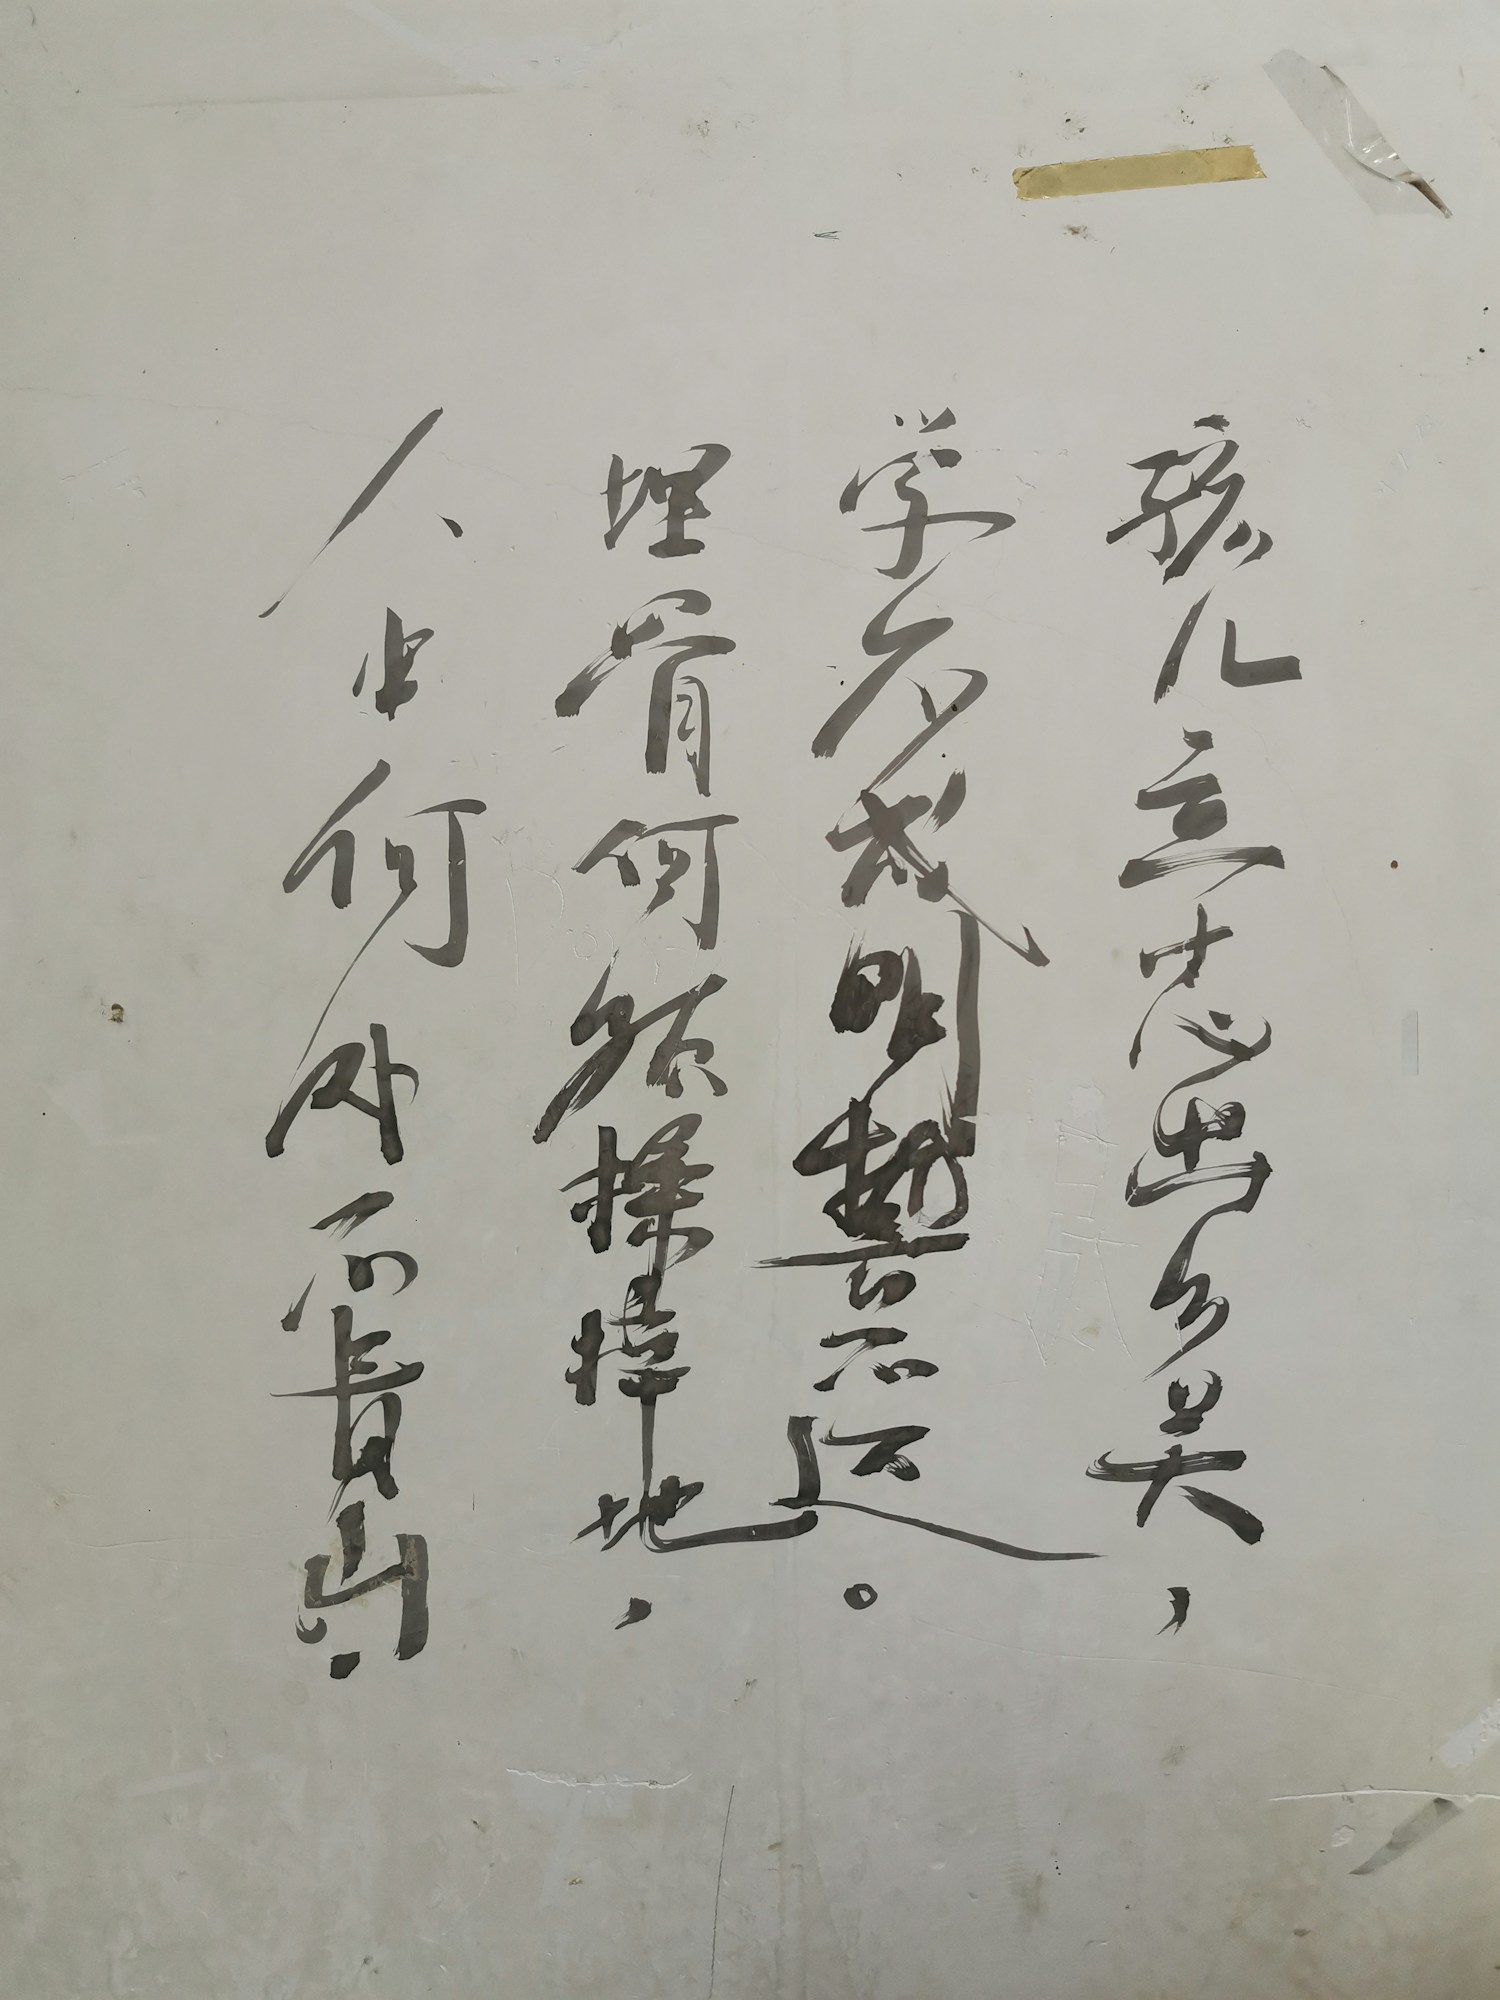 孩儿立志出乡关,
学不成明誓不还。
埋骨何须操梓地,
人生何处不青山.